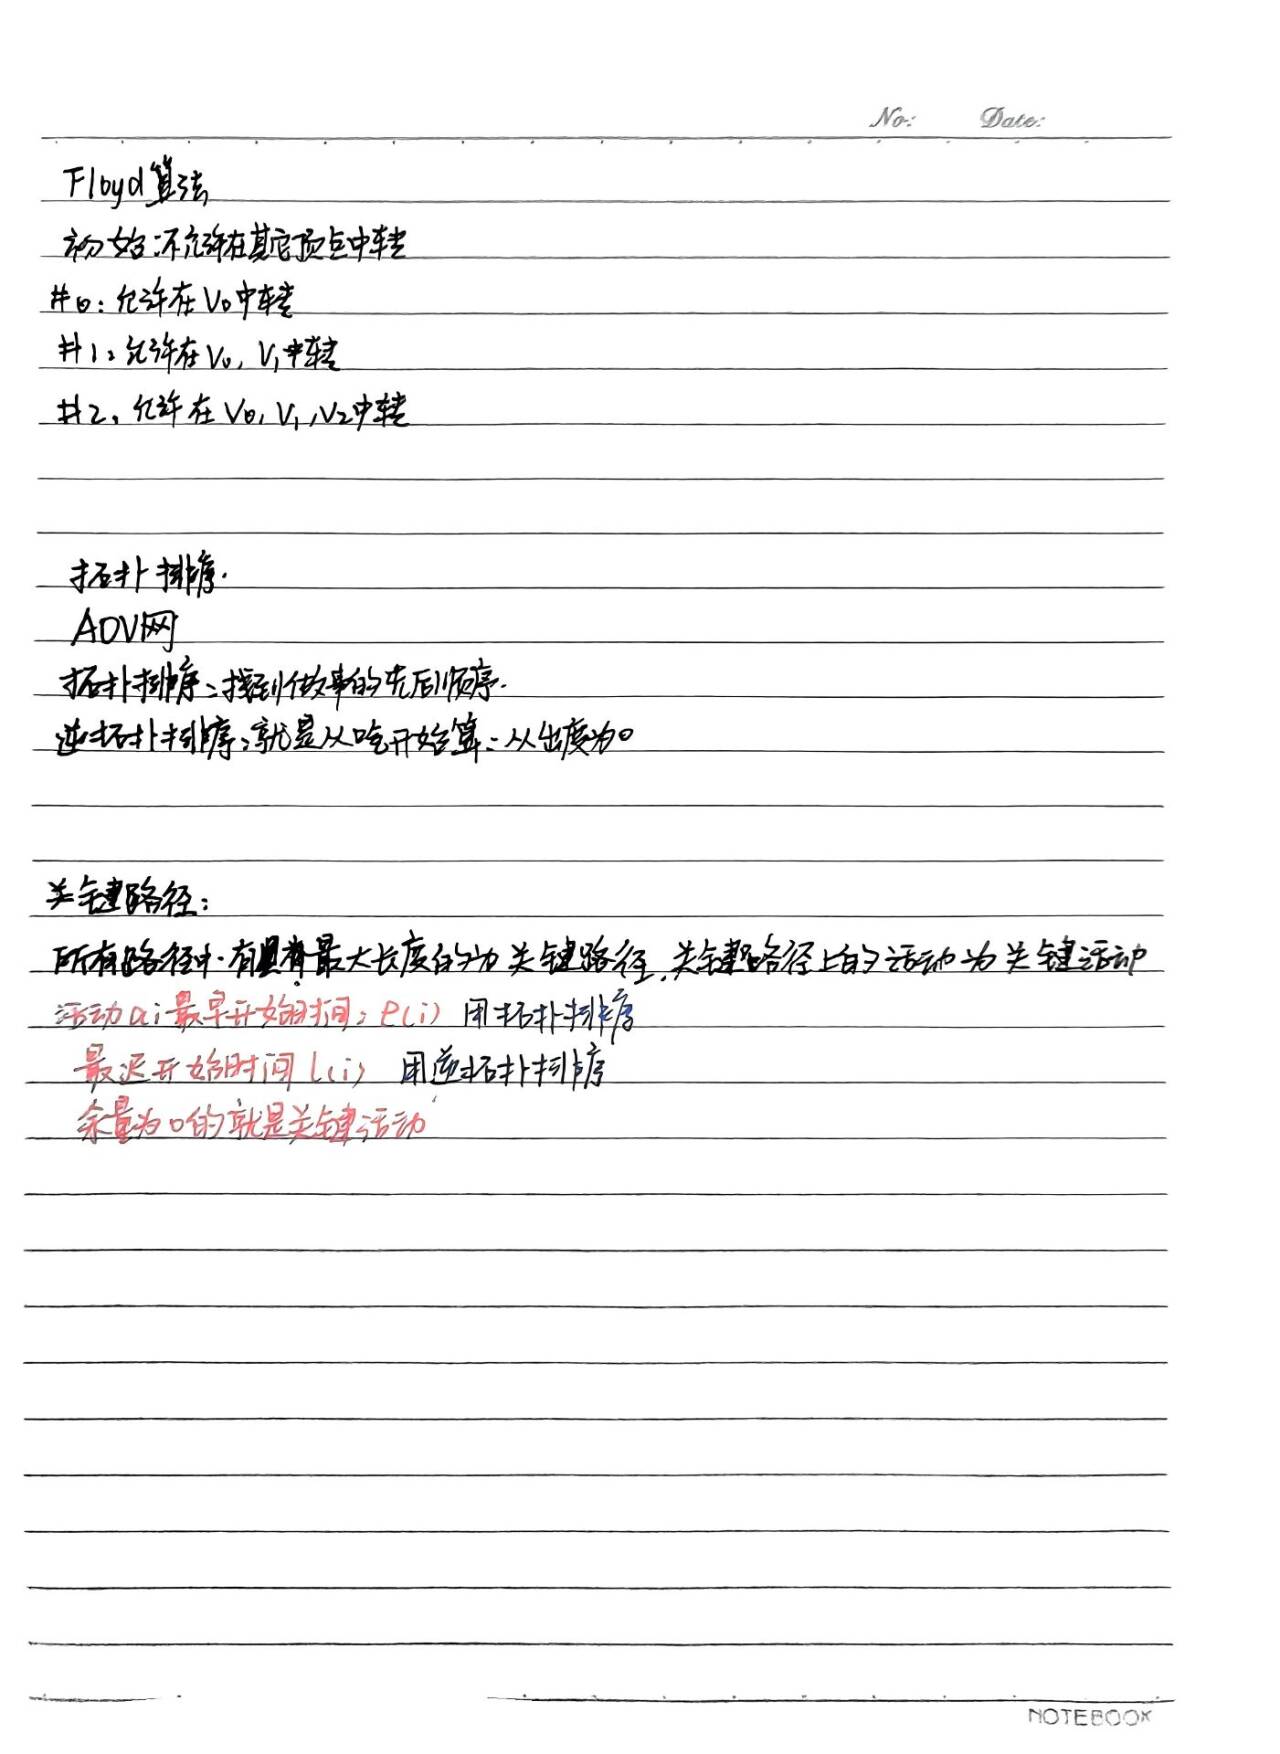 No: Date:
Floyd算法
初始:不允许在其它顶点中转
#0:允许在V0中转
#1:允许在V0,V1中转
#2,允许在V0,V1,V2中转
拓扑排序.
AOV网
拓扑排序:找到做事的先后顺序.
逆拓扑排序:就是从吃开始算:从出度为0
关键路径:
所有路径中.有具有最大长度的为关键路径,关键路径上的活动为关键活动
活动ai最早开始时间:e(i) 用拓扑排序
最迟开始时间l(i) 用逆拓扑排序
余量为0的就是关键活动
NOTEBOOK